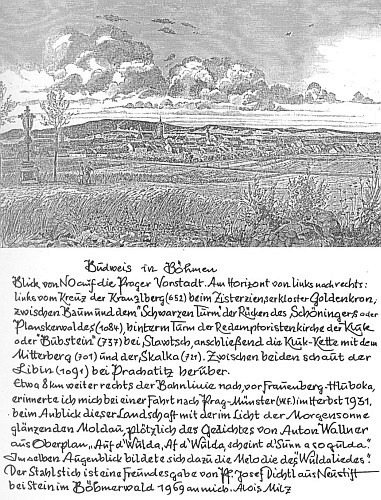 Budweis in Böhmen
Blick von NO auf die Prager Vorstadt. Am Horizont von links nach rechts:
links vom Kreuz der Kranzlberg (652) beim Zisterzienserkloster Goldenkron,
zwischen Baum und dem "Schwarzen Turm" der Rücken des Schöningers oder
Planskerwaldes (1084), hinterm Turm der Redemptoristenkirche der Kluk
oder "Bübstein" (737) bei Slawtsch, anschließend die Kluk-Kette mit dem
Mitterberg (701) und der Skalka (721). Zwischen beiden schaut der
Libin (1091) bei Prachatitz herüber.
Etwa 8 km weiter rechts der Bahnlinie nach, vor Frauenberg-Hluboka,
erinnerte ich mich bei einer Fahrt nach Prag-Münster (W.F.) im Herbst 1931,
beim Anblick dieser Landschaft mit der im Licht der Morgensonne
glänzenden Moldau, plötzlich des Gedichtes von Anton Wallner
aus Oberplan, "Auf d'Wulda, Af d'Wulda, scheint d'Sunn a so gulda".
Im selben Augenblick bildete sich dazu die Melodie des "Wuldaliedes".
Der Stahlstich ist eine Freundesgabe von Pf. Josef Dichtl aus Neustift
bei Stein im Böhmerwald 1969 an mich. Alois Milz